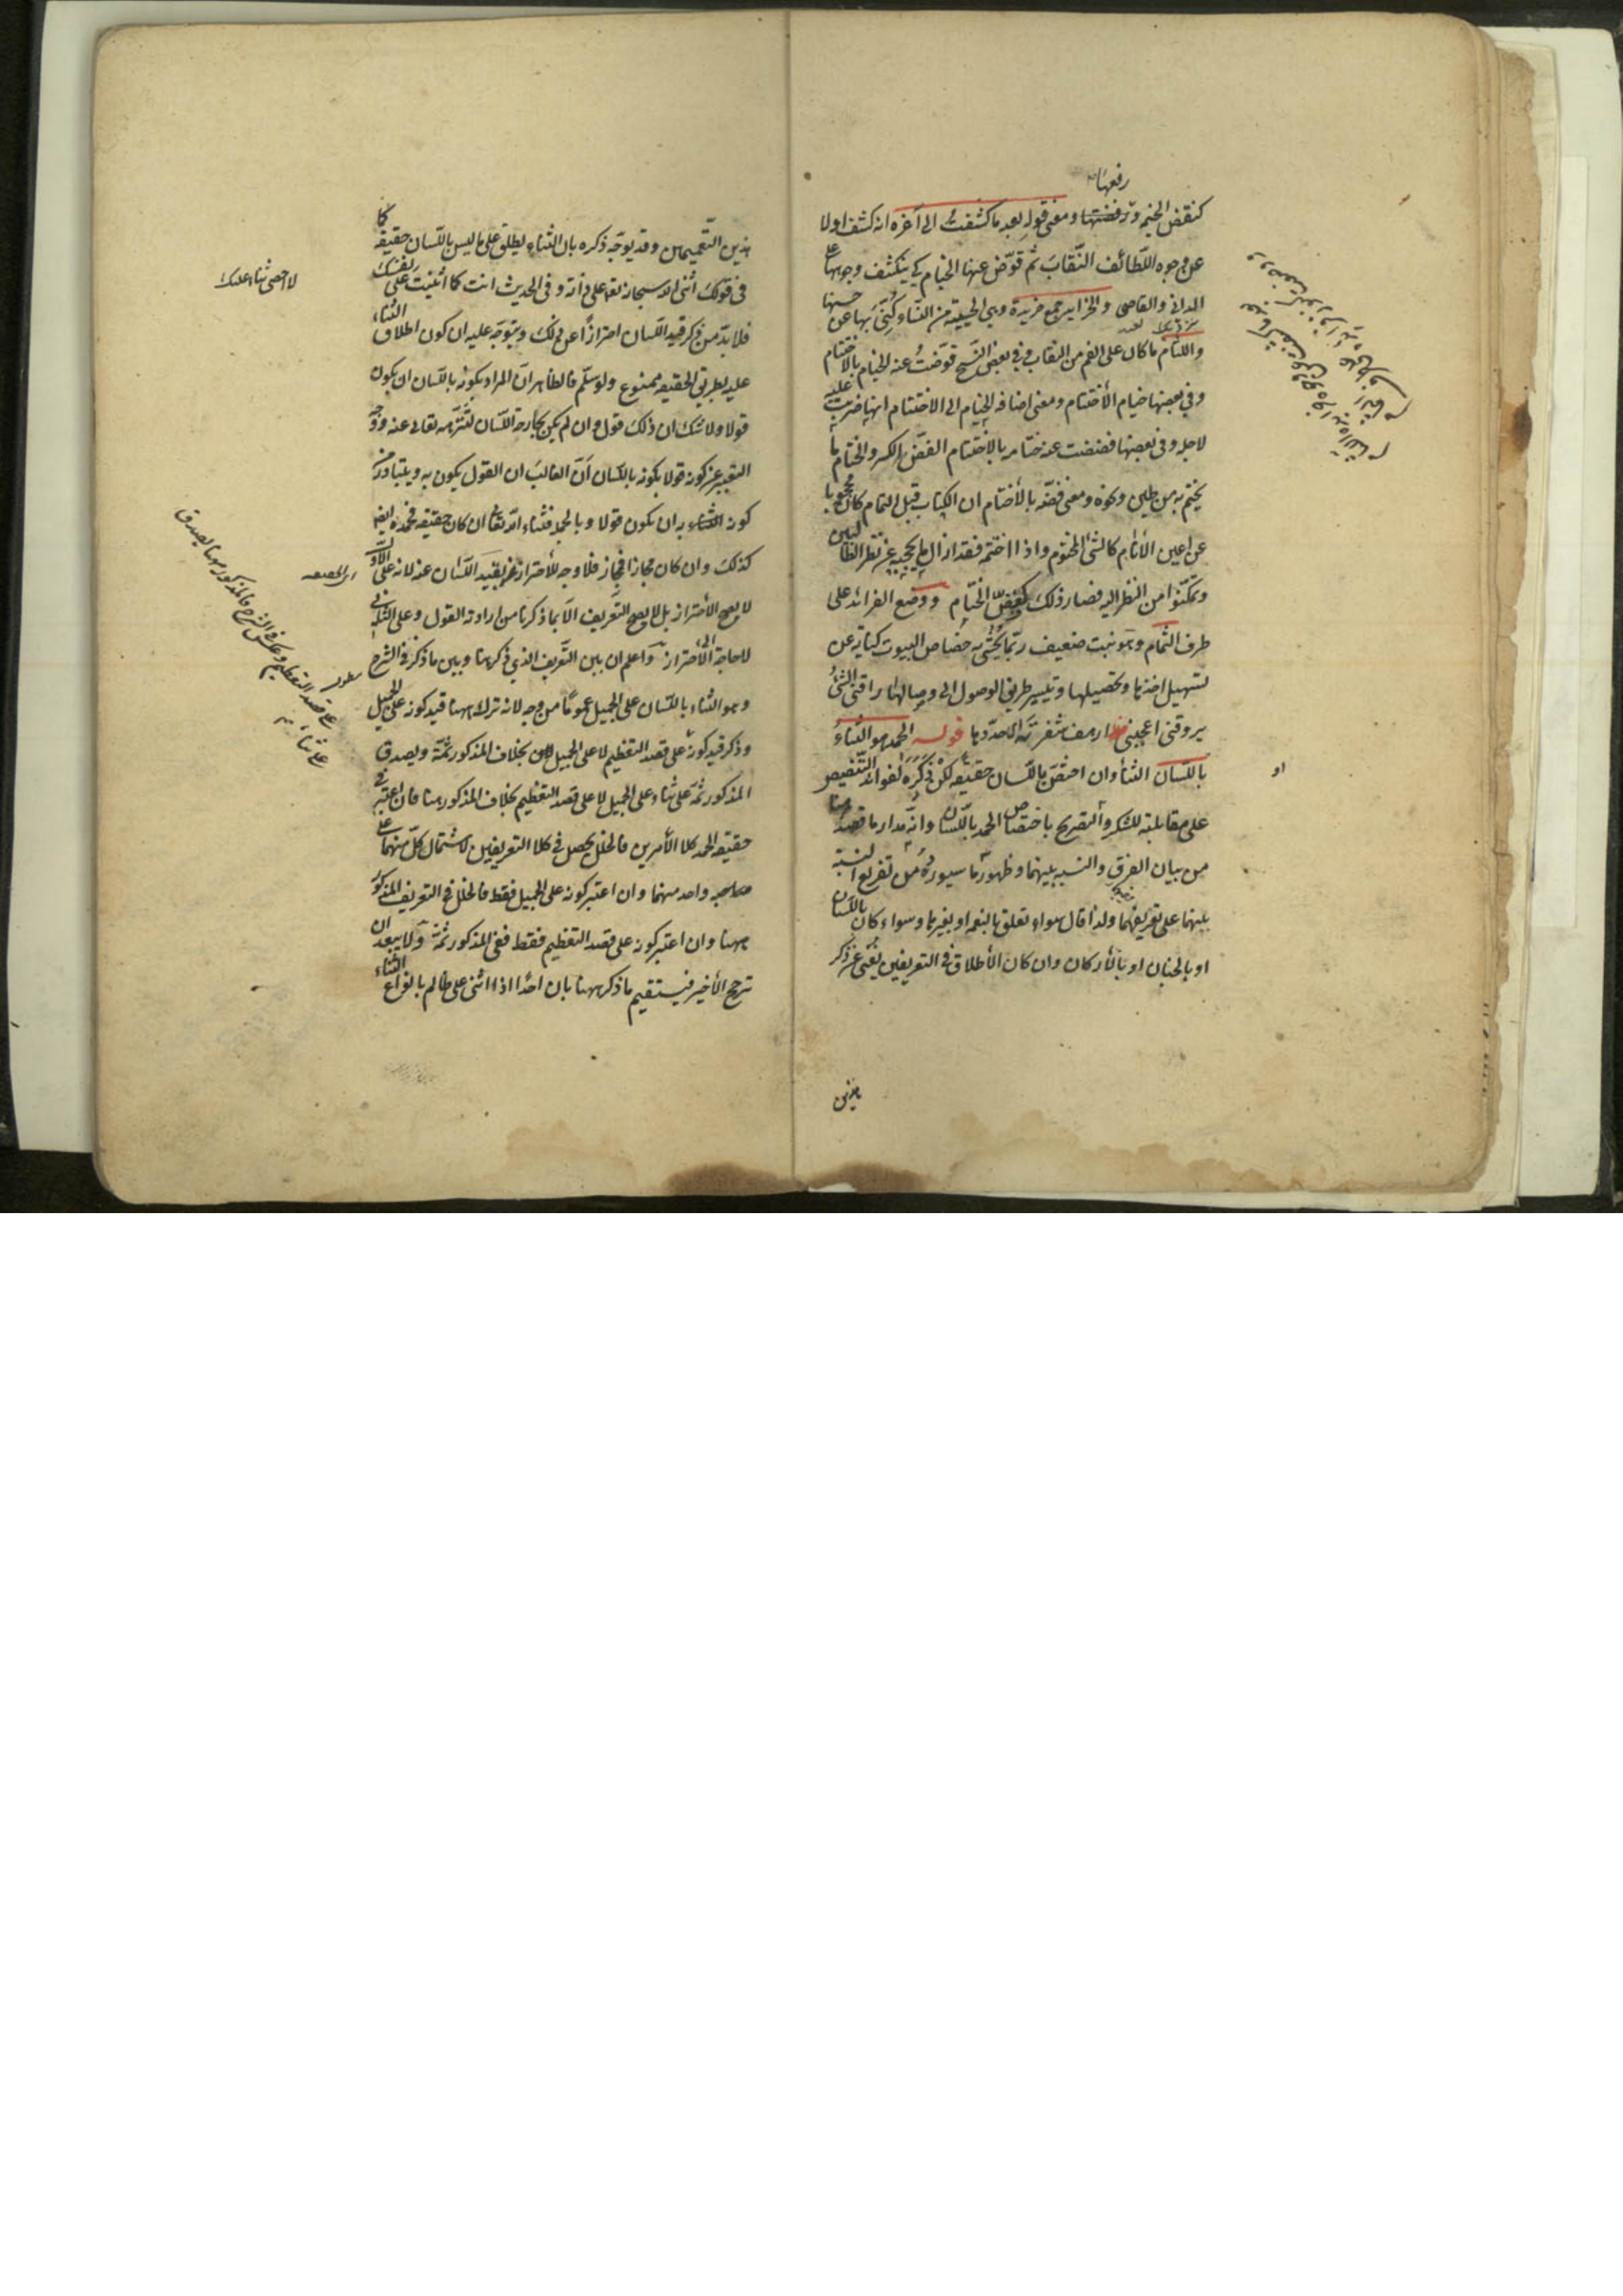 رفعتها
كنقض الخيم ورفضتها ومعنى قوله بعد ما كشفت الى آخره انه كشف اولا
عن وجوه اللطائف النقاب ثم قوض عنها الخيام كي ينكشف وجوهها على
الدانى والقاصى والخرايد جمع خريدة وهي الحييية من النساء كنى بها عن حسنها
واللثام ما كان على الفم من النقاب وفي بعض النسخ قوضت عنه الخيام بالاختتام
وفي بعضها خيام الأختتام ومعنى اضافه الخيام الى الاختتام انها ضربت عليه
لاجله وفى بعضها فضضت عنه ختامه بالاختتام الفض الكسر والختام ما
يختم به من طين ونحوه ومعنى فضه بالأختتام ان الكتاب قبل التمام كان محجوبا
عن اعين الأنام كالشئ المختوم واذا اختتمه فقد ازال ما يحجبه عن نظر الطالبين
وتمكنوا من النظر اليه فصار ذلك كفض الختام ووضع الفرائد على
طرف الثمام وهو نبت ضعيف ربما يحشى به خصاص البيوت كناية عن
تسهيل اخذها وتحصيلها وتيسير طريق الوصول الى وصالها راقنى الشئ
يروقنى اعجبنى ارهف شفرته اى حددها قوله الحمد هو الثناء
باللسان الثناء وان اختص باللسان حقيقه لكن ذكره لفوائد التنصيص
على مقابلته للشكر والتصريح باختصاص الحمد باللسان وانه مدار ما قصد هنا
من بيان الفرق والنسبه بينهما وظهور ما سيورده من تفريع النسبة
بينهما على تعريفهما ولذا قال سواء تعلق بالنعمه او بغيرها وسواء كان باللسان
او بالجنان او بالأركان وان كان الأطلاق في التعريفين يغنى عن ذكر
هذين
او
هذين التعميمين وقد يوجه ذكره بان الثناء يطلق على ما ليس باللسان حقيقه كما
في قولك اثنى الله سبحانه تعالى على ذاته وفي الحديث انت كما اثنيت على نفسك
فلا بد من ذكر قيد اللسان احترازا عن ذلك ويتوجه عليه ان كون اطلاق الثناء
عليه بطريق الحقيقه ممنوع ولو سلم فالظاهر ان المراد بكونه باللسان ان يكون
قولا ولا شك ان ذلك قول وان لم يكن بجارحة اللسان لتنزهه تعالى عنه ووجه
التعبير عن كونه قولا بكونه باللسان ان الغالب ان القول يكون به ويتبادر من
كون الثناء به ان يكون قولا وبالجمله فثناء الله تعالى ان كان حقيقه فحمده ايضا
كذلك وان كان مجازا فمجاز فلا وجه للأحتراز عن بقيد اللسان عنه لانه على الاول
لا يصح الأحتراز بل لا يصح التعريف الا بما ذكرنا من ارادة القول وعلى الثانى
لا حاجة الى الأحتراز واعلم ان بين التعريف الذي ذكر هنا وبين ما ذكر في الشرح
وهو الثناء باللسان على الجميل عموما من وجه لانه ترك ههنا قيد كونه على الجميل
وذكر قيد كونه على قصد التعظيم لا على الجميل بخلاف المذكور ثمة ويصدق
المذكور ثمة على ثناء على الجميل لا على قصد التعظيم بخلاف المذكور هنا فان اعتبر في
حقيقه الحمد كلا الأمرين فالخلل يحصل في كلا التعريفين لاشتمال كل منهما على
واحد منهما وان اعتبر كونه على الجميل فقط فالخلل في التعريف المذكور
ههنا وان اعتبر كونه على قصد التعظيم فقط ففى المذكور ثمة ولا يبعد ان
ترجح الأخير فيستقيم ما ذكر ههنا بان احدا اذا اثنى على ظالم بانواع الثناء
لا احصى ثناء عليك
اى الحقيقه